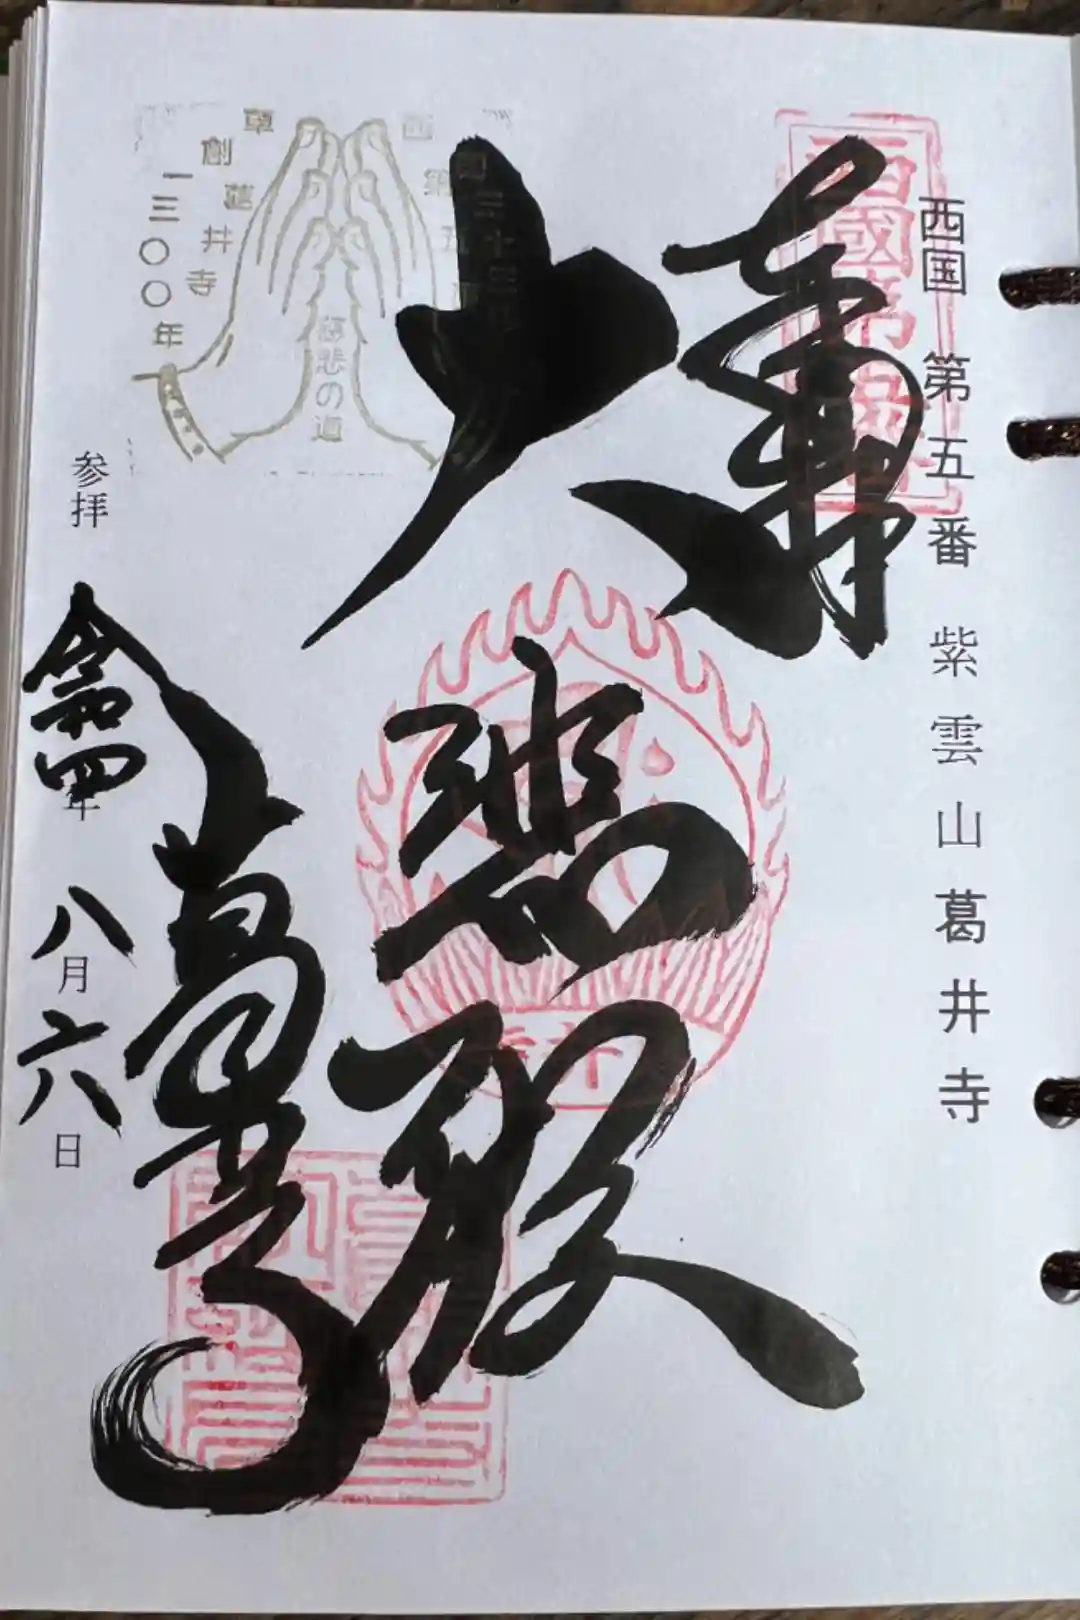 西国 第五番 紫雲山葛井寺
奉拝
大悲殿
葛井寺
西国三十三所
第五番
葛井寺
草創
一三〇〇年
慈悲の道
参拝 令和四年 八月六日